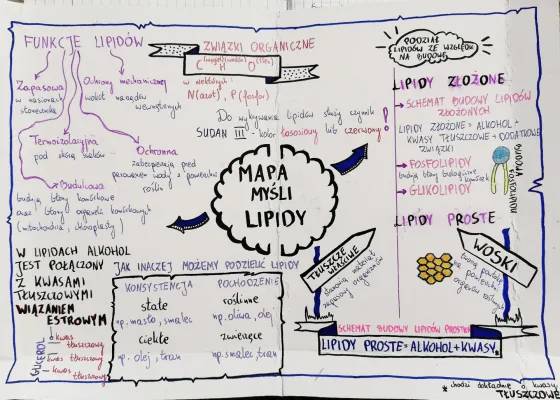 FUNKCJE LIPIDÓW
Zapasowa
w nasionach
słonecznika
Ochrony mechanicznej
wokół narządów
wewnętrznych
Termoizolacyjna
pod skórą ssaków
Ochronna
zabezpieczają przed
parowaniem wody z powierzchni
roślin
Budulcowa
budują błony komórkowe
oraz błony organelli komórkowych
(mitochondria, chloroplasty)
ZWIĄZKI ORGANICZNE
C (węgiel) H (wodór) O (tlen)
w niektórych
N (azot), P (fosfor)
Do wykrywania lipidów służy czynnik
SUDAN III - kolor łososiowy lub czerwony!
MAPA
MYŚLI
LIPIDY
PODZIAŁ
LIPIDÓW ZE WZGLĘDU
NA BUDOWĘ
LIPIDY ZŁOŻONE
SCHEMAT BUDOWY LIPIDÓW
ZŁOŻONYCH
LIPIDY ZŁOŻONE = ALKOHOL +
KWASY TŁUSZCZOWE + DODATKOWE
ZWIĄZKI
FOSFOLIPIDY
budują błony biologiczne
GLIKOLIPIDY
BUDOWA
FOSFOLIPIDU
LIPIDY PROSTE
TŁUSZCZE
WŁAŚCIWE
stanowią materiał
zapasowy organizmów
WOSKI
tworzą powłokę
na powierzchni
organów roślinnych
SCHEMAT BUDOWY LIPIDÓW PROSTYCH
LIPIDY PROSTE = ALKOHOL + KWASY*
* chodzi dokładnie o kwasy
TŁUSZCZOWE
W LIPIDACH ALKOHOL
JEST POŁĄCZONY
Z KWASAMI
TŁUSZCZOWYMI
WIĄZANIEM
ESTROWYM
GLICEROL
kwas
tłuszczowy
kwas tłuszczowy
kwas
tłuszczowy
JAK INACZEJ MOŻEMY PODZIELIĆ LIPIDY
KONSYSTENCJA
stałe
np. masło, smalec
ciekłe
np. olej, tran
POCHODZENIE
roślinne
np. oliwa, olej
zwierzęce
np. smalec, tran